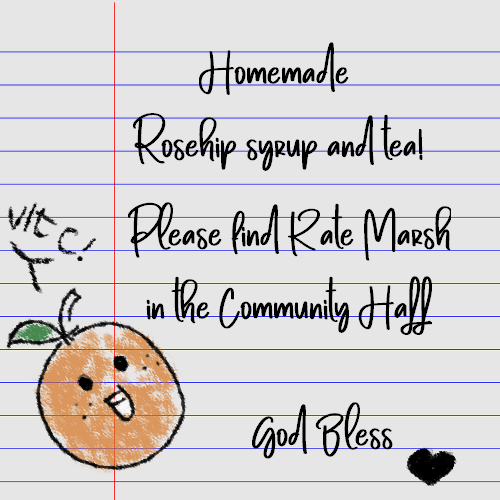 Homemade
Rosehip syrup and tea!
Please find Kate Marsh
in the Community Hall
God Bless
Vit C!